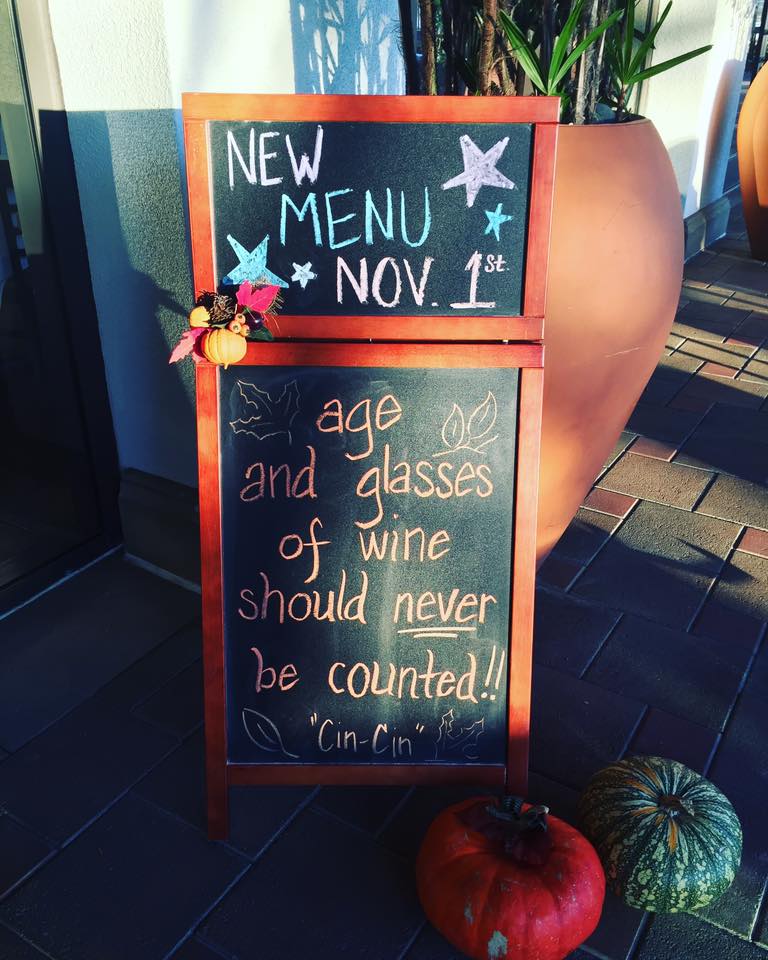 NEW
MENU
NOV. 1st.
age
and glasses
of wine
should never
be counted!!
"Cin-Cin"